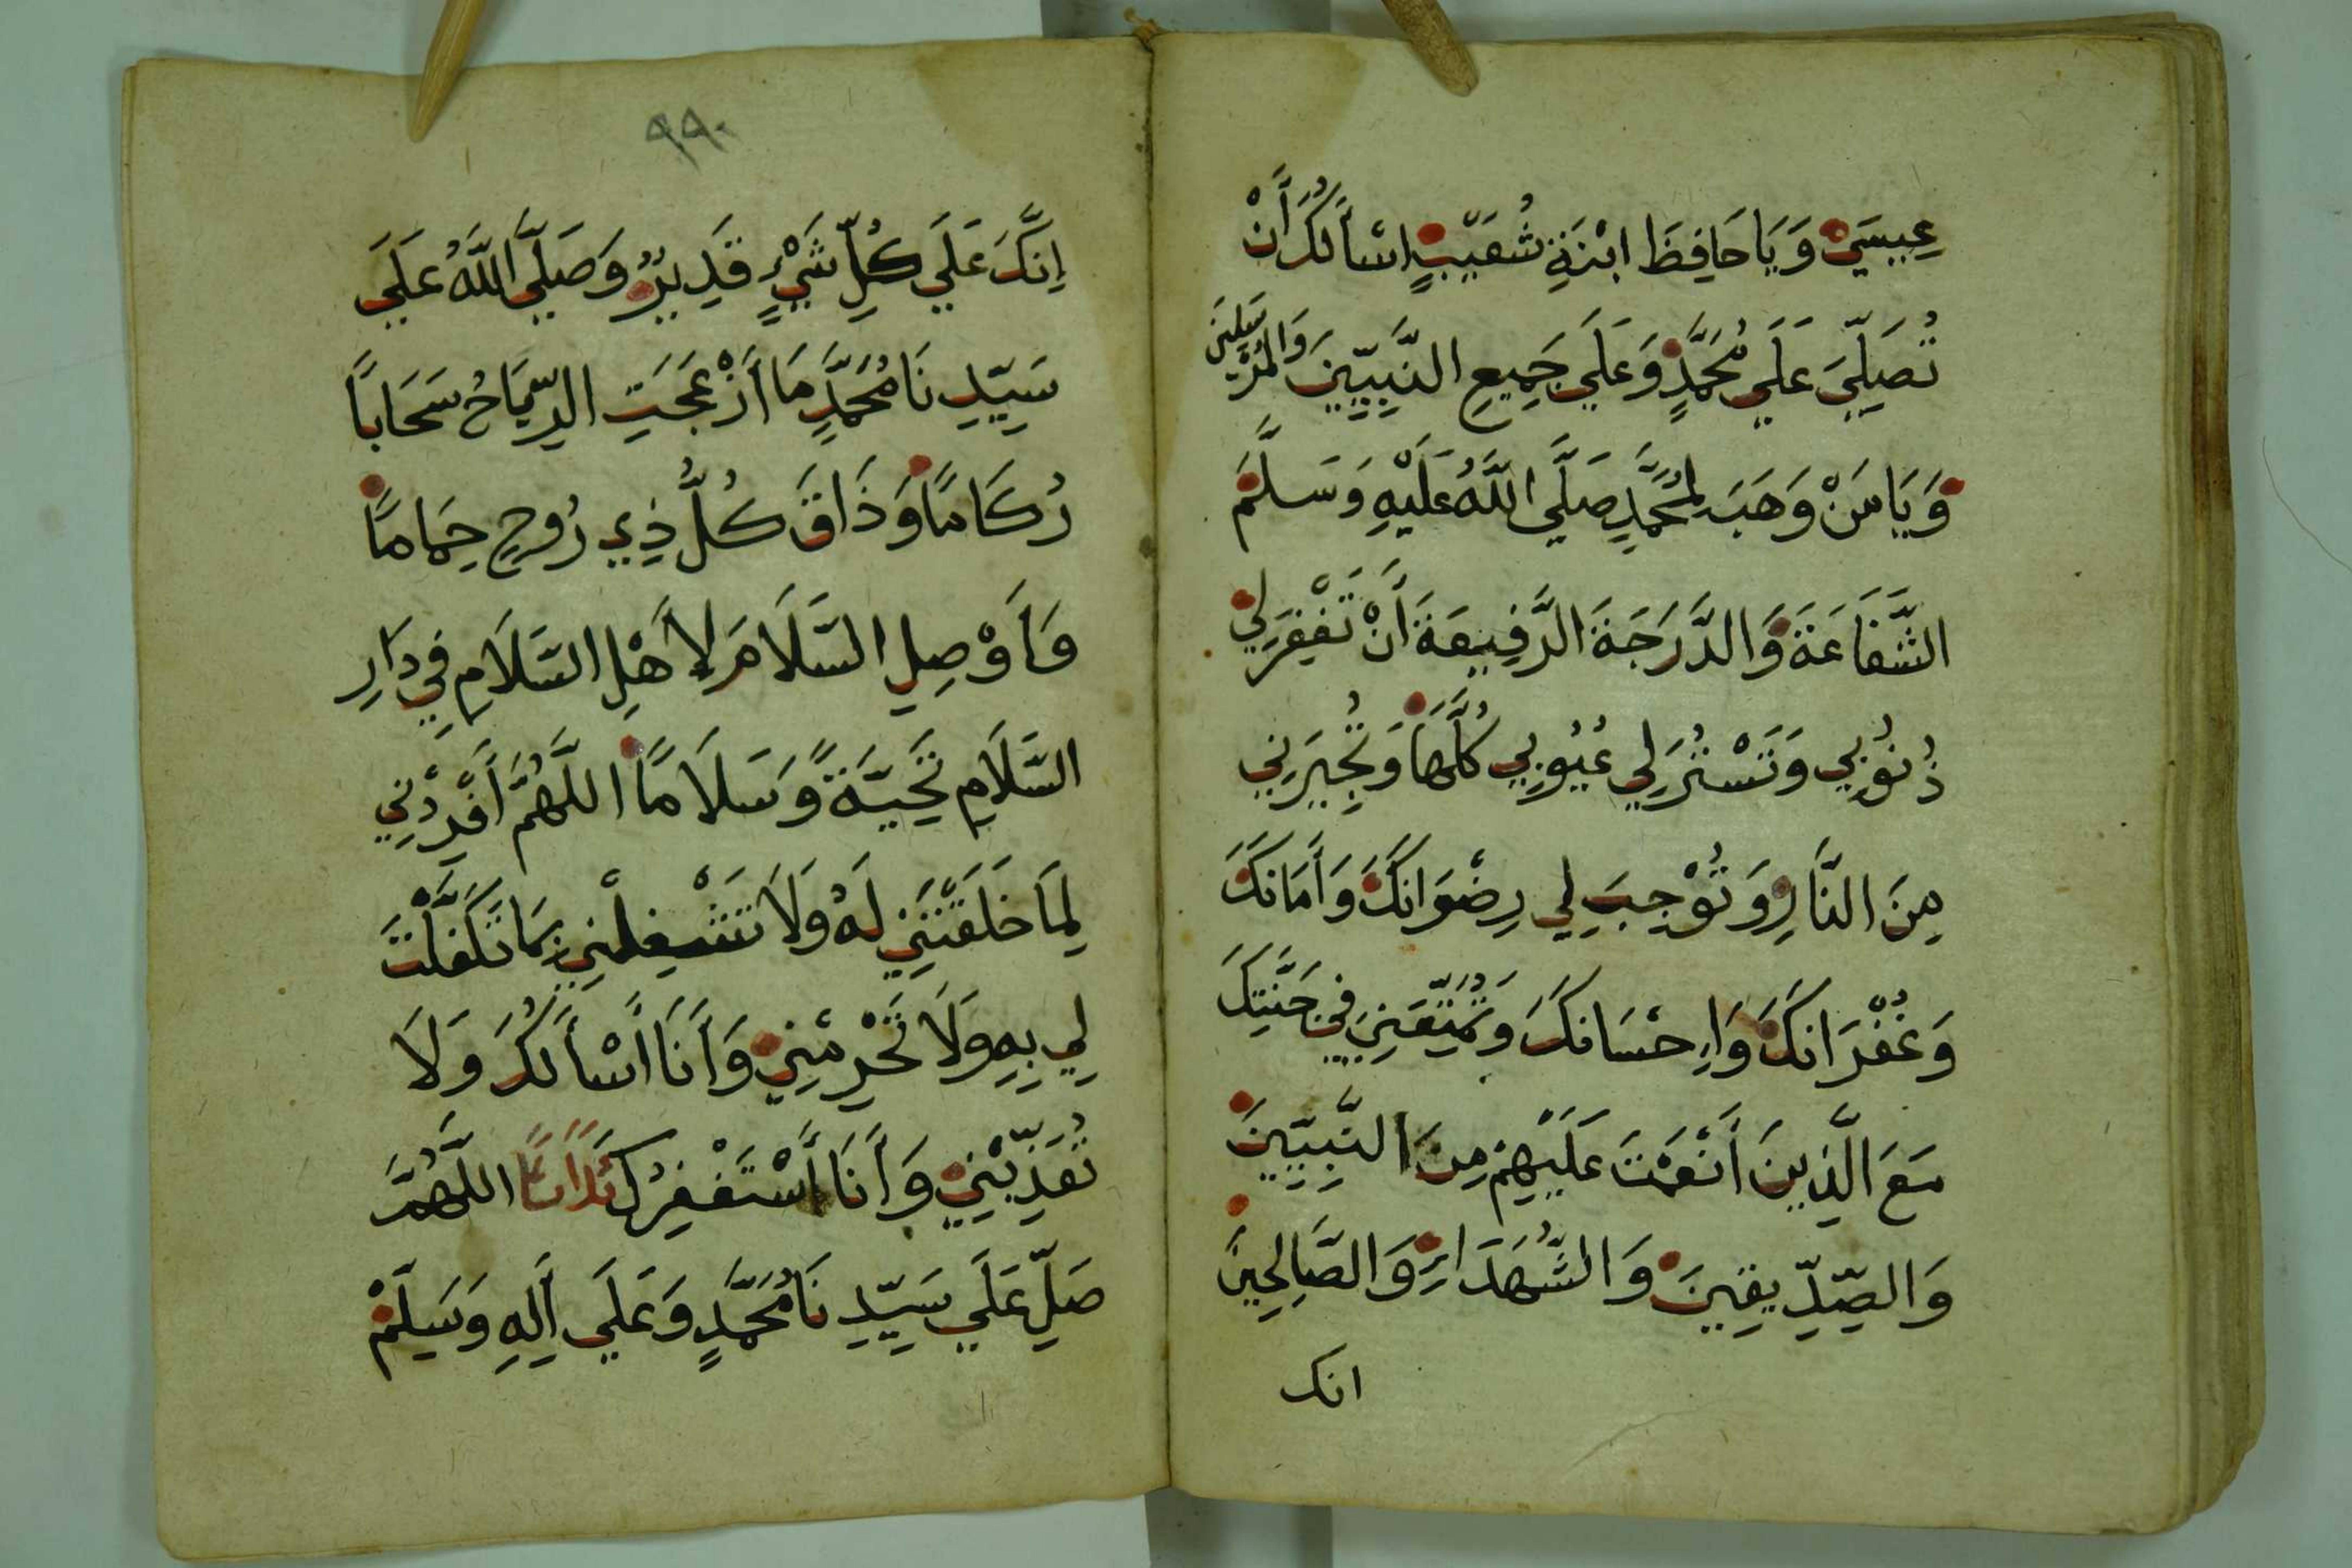 عِيسَي وَيَا حَافِظَ ابْنَةِ شُعَيْبٍ اسْأَلُكَ أَنْ
تُصَلِّيَ عَلَي مُحَمَّدٍ وَعَلَي جَمِيعِ النَّبِيِّينَ وَالْمُرْسَلِينَ
وَيَا مَنْ وَهَبَ لِمُحَمَّدٍ صَلَّي اللَّهُ عَلَيْهِ وَسَلَّمَ
الشَّفَاعَةَ وَالدَّرَجَةَ الرَّفِيعَةَ أَنْ تَغْفِرَ لِي
ذُنُوبِي وَتَسْتُرَ لِي عُيُوبِي كُلَّهَا وَتُجِيرَنِي
مِنَ النَّارِ وَتُوْجِبَ لِي رِضْوَانَكَ وَأَمَانَكَ
وَغُفْرَانَكَ وَاِحْسَانَكَ وَتُمَتِّعَنِي فِي جَنَّتِكَ
مَعَ الَّذِينَ أَنْعَمْتَ عَلَيْهِمْ مِنَ النَّبِيِّينَ
وَالصِّدِّيقِينَ وَالشُّهَدَاءِ وَالصَّالِحِينَ
انك
٩٩٠
اِنَّكَ عَلَي كُلِّ شَيْءٍ قَدِيرٌ وَصَلَّي اللَّهُ عَلَي
سَيِّدِنَا مُحَمَّدٍ مَا أَزْعَجَتِ الرِّيَاحُ سَحَاباً
رُكَامًا وَذَاقَ كُلُّ ذِي رُوحٍ حِمَامًا
وَأَوْصِلِ السَّلَامَ لِأَهْلِ السَّلَامِ فِي دَارِ
السَّلَامِ تَحِيَّةً وَسَلَامًا اللَّهُمَّ أَفْرِدْنِي
لِمَا خَلَقْتَنِي لَهُ وَلَا تَشْغِلْنِي بِمَا تَكَفَّلْتَ
لِي بِهِ وَلَا تَحْرِمْنِي وَأَنَا أَسْأَلُكَ وَلَا
تُعَذِّبْنِي وَأَنَا أَسْتَغْفِرُكَ ثَلَاثًا اللَّهُمَّ
صَلِّ عَلَي سَيِّدِنَا مُحَمَّدٍ وَعَلَي آلِهِ وَسَلِّمْ